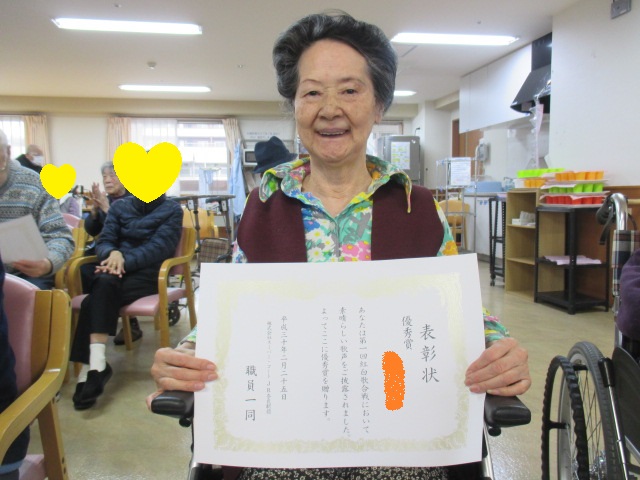 表彰状
優秀賞
あなたは第一回紅白歌合戦において
素晴らしい歌声をご披露されました。
よってここに優秀賞を贈ります。
平成三十年二月二十五日
職員一同